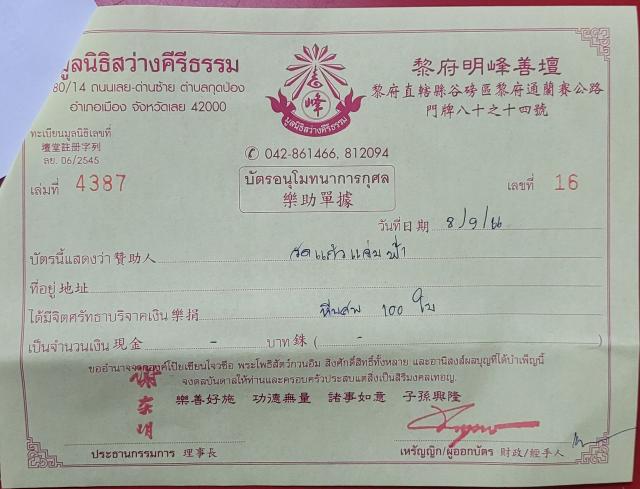 มูลนิธิสว่างคีรีธรรม
80/14 ถนนเลย-ด่านซ้าย ตำบลกุดป่อง
อำเภอเมือง จังหวัดเลย 42000
志峰
มูลนิธิสว่างคีรีธรรม
黎府明峰善壇
黎府直轄縣谷磅區黎府通蘭賽公路
門牌八十之十四號
ทะเบียนมูลนิธิเลขที่
壇堂註册字列
ลย. 06/2545
✆ 042-861466, 812094
เล่มที่ 4387
บัตรอนุโมทนาการกุศล
樂助單據
เลขที่ 16
วันที่日期 8/9/66
บัตรนี้แสดงว่า 贊助人 วัดแก้วแจ่มฟ้า
ที่อยู่ 地址
ได้มีจิตศรัทธาบริจาคเงิน 樂捐 หีบศพ 100 ใบ
เป็นจำนวนเงิน 現金 - บาท 銖 ( - )
ขออำนาจจากองค์โป๊ยเซียนโจวซือ พระโพธิสัตว์กวนอิม สิ่งศักดิ์สิทธิ์ทั้งหลาย และอานิสงส์ผลบุญที่ได้บำเพ็ญนี้
จงดลบันดาลให้ท่านและครอบครัวประสบแต่สิ่งเป็นสิริมงคลเทอญ.
樂善好施 功德無量 諸事如意 子孫興隆
ประธานกรรมการ 理事長
เหรัญญิก/ผู้ออกบัตร 財政/經手人